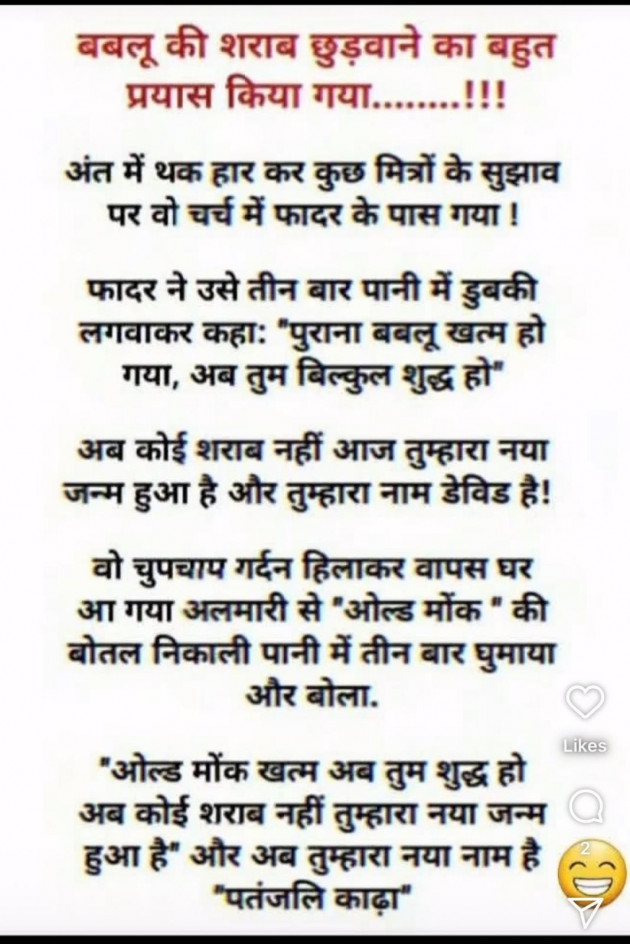 बबलू की शराब छुड़वाने का बहुत
प्रयास किया गया........!!!
अंत में थक हार कर कुछ मित्रों के सुझाव
पर वो चर्च में फादर के पास गया !
फादर ने उसे तीन बार पानी में डुबकी
लगवाकर कहा: "पुराना बबलू खत्म हो
गया, अब तुम बिल्कुल शुद्ध हो"
अब कोई शराब नहीं आज तुम्हारा नया
जन्म हुआ है और तुम्हारा नाम डेविड है!
वो चुपचाप गर्दन हिलाकर वापस घर
आ गया अलमारी से "ओल्ड मोंक " की
बोतल निकाली पानी में तीन बार घुमाया
और बोला.
"ओल्ड मोंक खत्म अब तुम शुद्ध हो
अब कोई शराब नहीं तुम्हारा नया जन्म
हुआ है" और अब तुम्हारा नया नाम है
"पतंजलि काढ़ा"
Likes
2